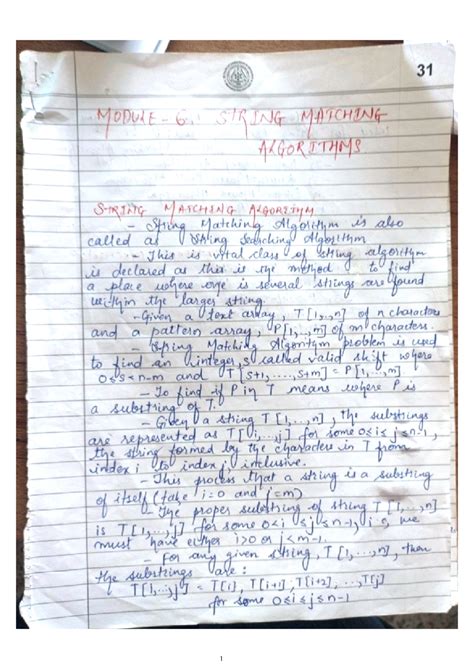 31
MODULE - 6. STRING MATCHING
ALGORITHMS
STRING MATCHING ALGORITHM
- String Matching Algorithm is also
called as String Searching Algorithm
- This is vital class of string algorithm
is declared as this is the method to find
a place where one is several strings are found
within the larger string.
- Given a text array, T[1,..,n] of n characters
and a pattern array, P[1,..,m] of m characters.
- String Matching Algorithm problem is used
to find an integer, s called valid shift where
0≤s<n-m and T[s+1,....,s+m] = P[1,..,m].
- To find if P in T means where P is
a substring of T.
- Given a string T[1,..,n], the substrings
are represented as T[i,..,j] for some 0≤i≤j≤n-1,
the string formed by the characters in T from
index i to index j, inclusive.
- This process that a string is a substring
of itself (take i=0 and j=m)
- The proper substring of string T[1,..,n]
is T[1,..,j] for some 0<i≤j≤n-1, i.e, we
must have either i>0 or j<m-1.
- For any given string, T[1,..,n], then
the substrings are:
T[1,..,j] = T[i], T[i+1], T[i+2], ..., T[j]
for some 0≤i≤j≤n-1
1